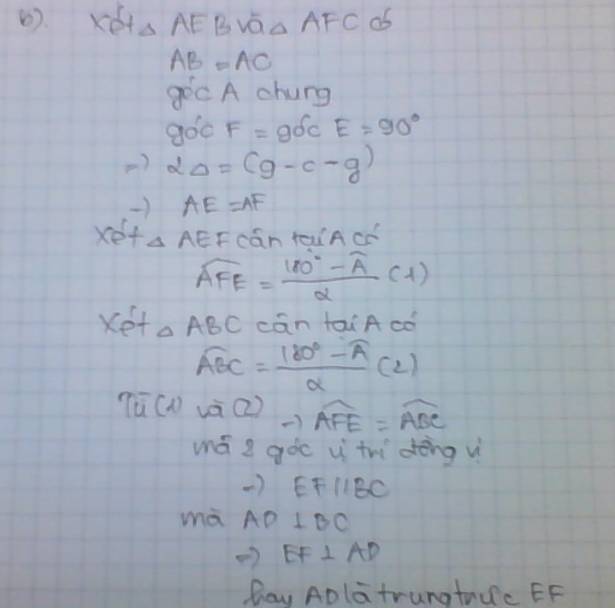 b) Xét △ AEB và △ AFC có
AB = AC
góc A chung
góc F = góc E = 90°
=> 2△ = (g-c-g)
-> AE = AF
Xét △ AEF cân tại A có
AFE = 180° - A / 2 (1)
Xét △ ABC cân tại A có
ABC = 180° - A / 2 (2)
Từ (1) và (2) -> AFE = ABC
mà 2 góc vị trí đồng vị
-> EF // BC
mà AD ⊥ BC
=> EF ⊥ AD
hay AD là trung trực EF